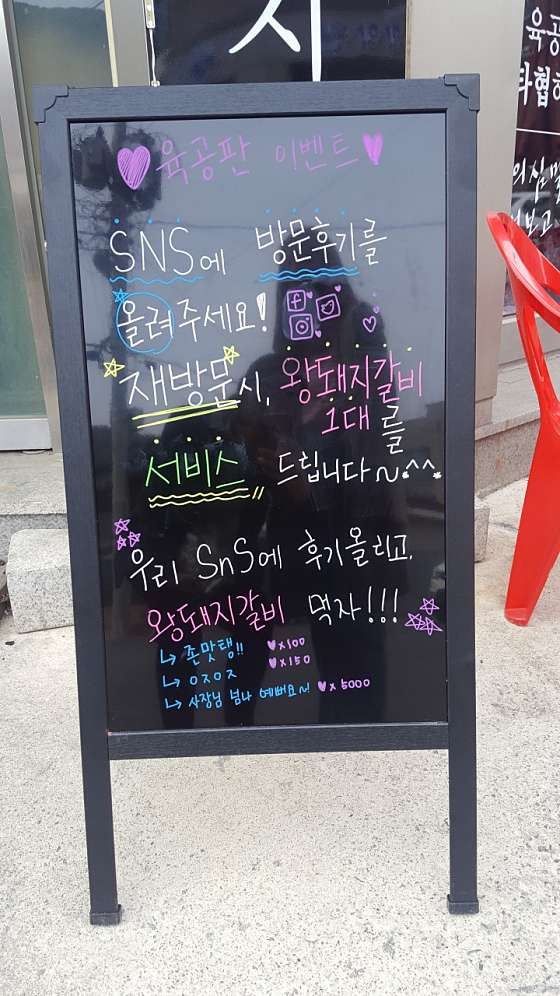 지
육공
타협하
의심 말
보고
육공판 이벤트
SNS에 방문후기를
올려주세요!
재방문시, 왕돼지갈비
1대를
서비스 드립니다~^^
우리 SnS에 후기올리고,
왕돼지갈비 먹자!!!
↳ 존맛탱!! ♥x100
↳ ㅇㅈㅇㅈ ♥x150
↳ 사장님 넘나 예뻐요~! ♥x5000